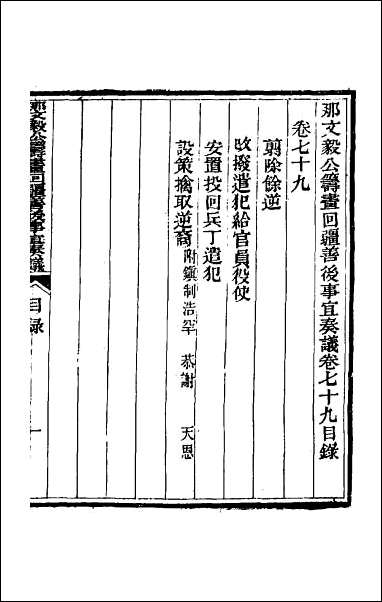 那文毅公籌畫回疆善後事宜奏議卷七十九目錄
卷七十九
剪除餘逆
改撥遣犯給官員役使
安置投回兵丁遣犯
設策擒取逆裔 附鎭制浩罕 恭謝 天恩
那文毅公籌畫回疆善後事宜奏議 目錄 一